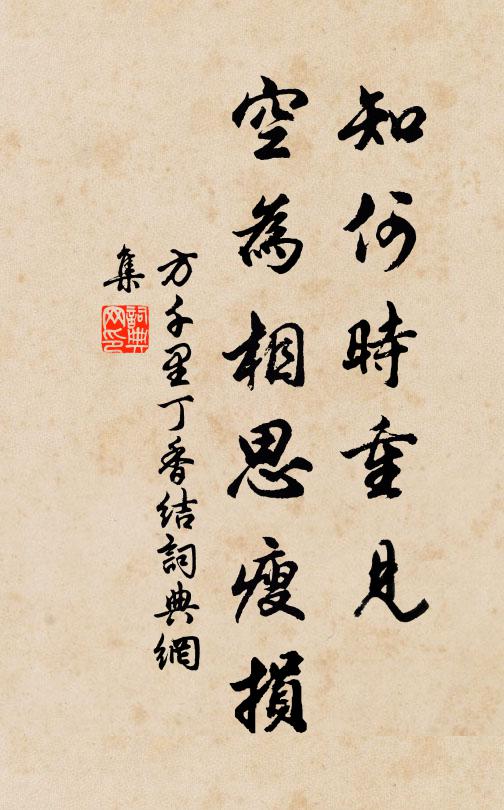 知何時重見
空為相思瘦損
方千里丁香結詞典網
集
詞典
网印